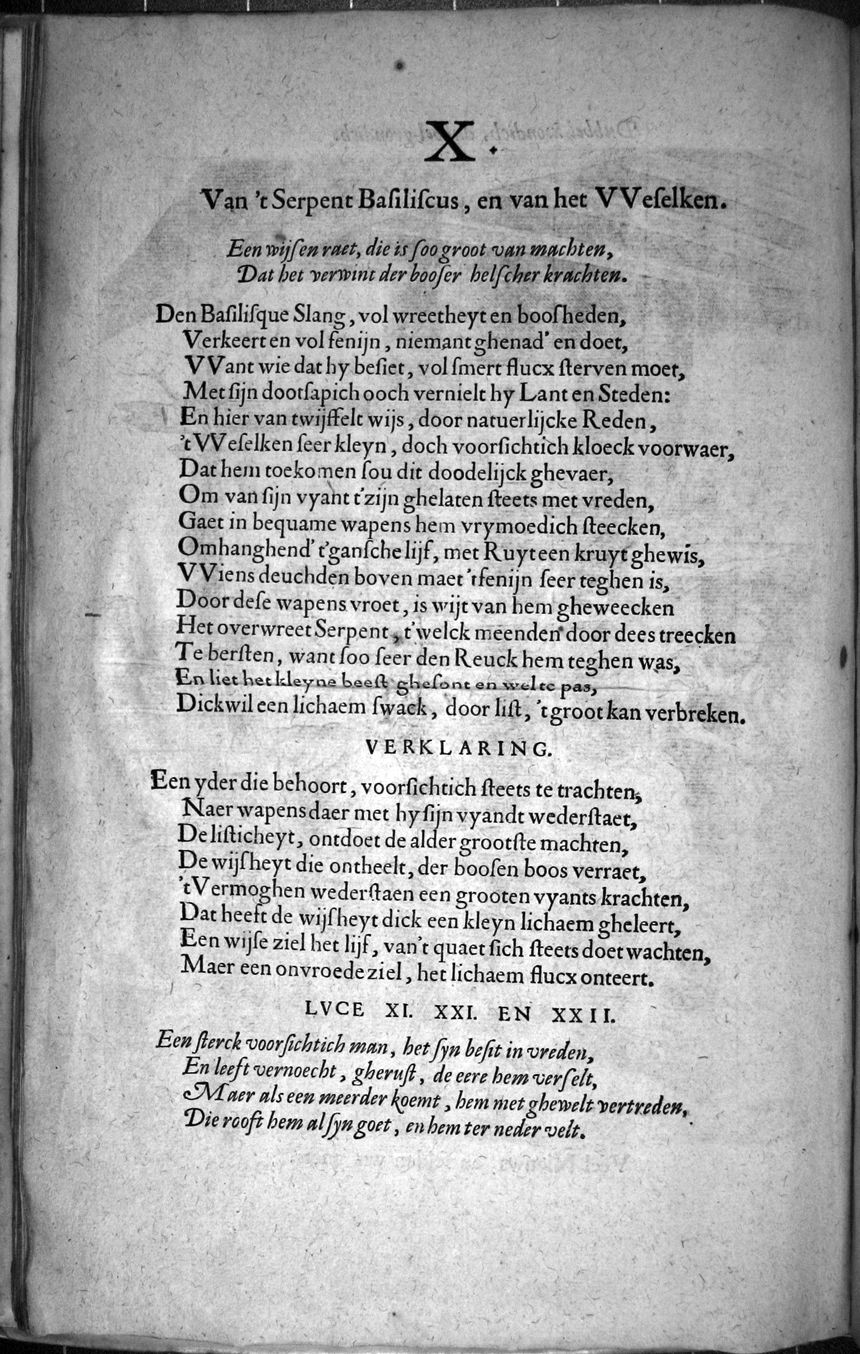 X.
Van 't Serpent Basiliscus, en van het VVeselken.
Een wijsen raet, die is soo groot van machten,
Dat het verwint der booser helscher krachten.
Den Basilisque Slang, vol wreetheyt en boosheden,
Verkeert en vol fenijn, niemant ghenad' en doet,
VVant wie dat hy besiet, vol smert flucx sterven moet,
Met sijn dootsapich ooch vernielt hy Lant en Steden:
En hier van twijffelt wijs, door natuerlijcke Reden,
'tVVeselken seer kleyn, doch voorsichtich kloeck voorwaer,
Dat hem toekomen sou dit doodelijck ghevaer,
Om van sijn vyant t'zijn ghelaten steets met vreden,
Gaet in bequame wapens hem vrymoedich steecken,
Omhanghend' t'gansche lijf, met Ruyt een kruyt ghewis,
VViens deuchden boven maet 't fenijn seer teghen is,
Door dese wapens vroet, is wijt van hem gheweecken
Het overwreet Serpent, t'welck meenden door dees treecken
Te bersten, want soo seer den Reuck hem teghen was,
En liet het kleyne beest ghesont en wel te pas,
Dickwil een lichaem swack, door list, 't groot kan verbreken.
VERKLARING.
Een yder die behoort, voorsichtich steets te trachten,
Naer wapens daer met hy sijn vyandt wederstaet,
De listicheyt, ontdoet de alder grootste machten,
De wijsheyt die ontheelt, der boosen boos verraet,
'tVermoghen wederstaen een grooten vyants krachten,
Dat heeft de wijsheyt dick een kleyn lichaem gheleert,
Een wijse ziel het lijf, van't quaet sich steets doet wachten,
Maer een onvroede ziel, het lichaem flucx onteert.
LVCE XI. XXI. EN XXII.
Een sterck voorsichtich man, het syn besit in vreden,
En leeft vernoecht, gherust, de eere hem verselt,
Maer als een meerder koemt, hem met ghewelt vertreden,
Die rooft hem al syn goet, en hem ter neder velt.